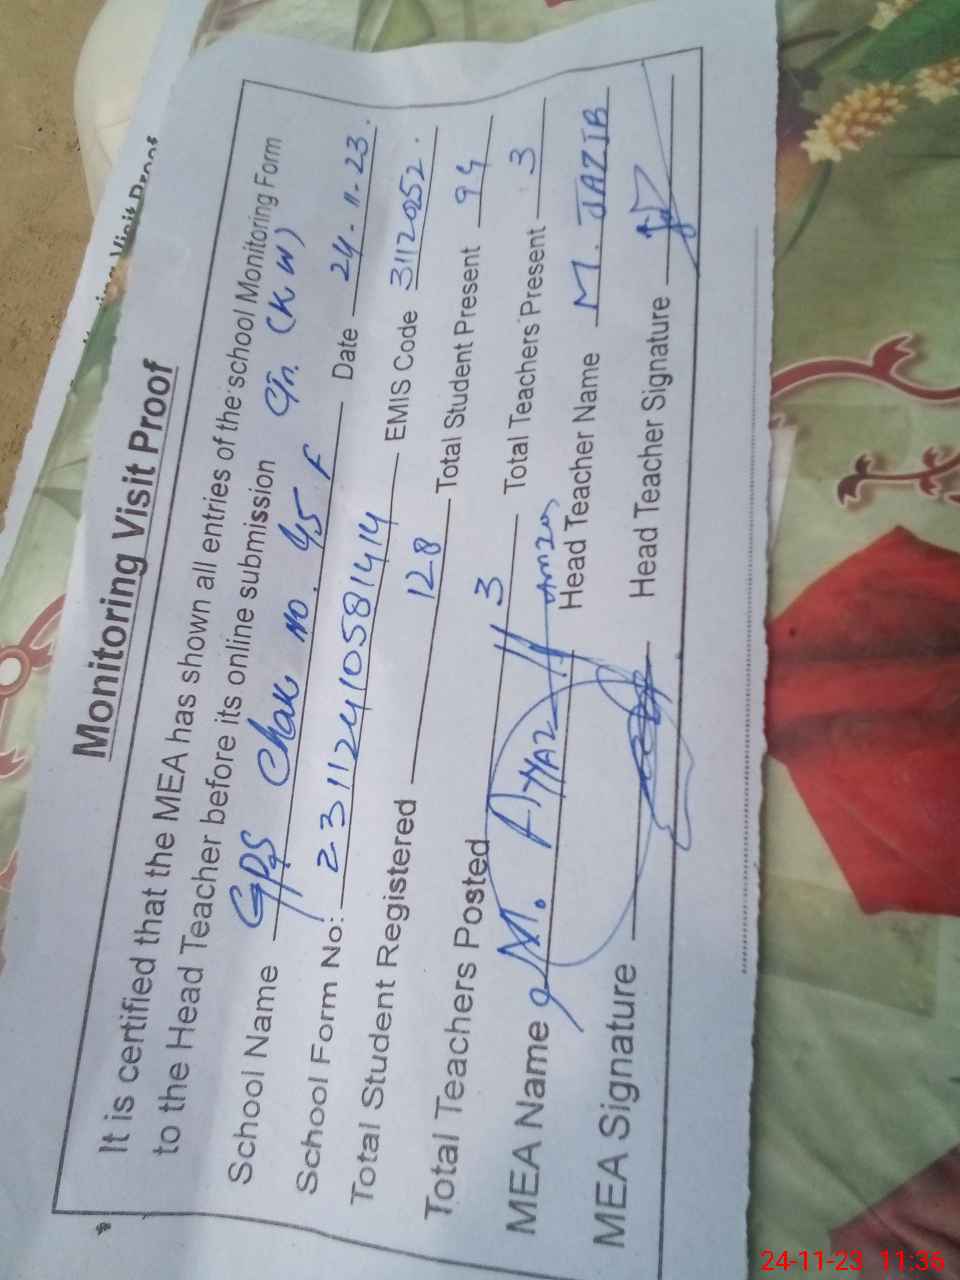 Monitoring Visit Proof
It is certified that the MEA has shown all entries of the school Monitoring Form
to the Head Teacher before its online submission
School Name GPS Chak No. 45 F (KW)
School Form No: 23112410581414 Date 24-11-23.
Total Student Registered 128 EMIS Code 3112052.
Total Teachers Posted 3 Total Student Present 94
Total Teachers Present 3
MEA Name M. AYYAZ Head Teacher Name M. JAZIB
MEA Signature Head Teacher Signature
24-11-23 11:36